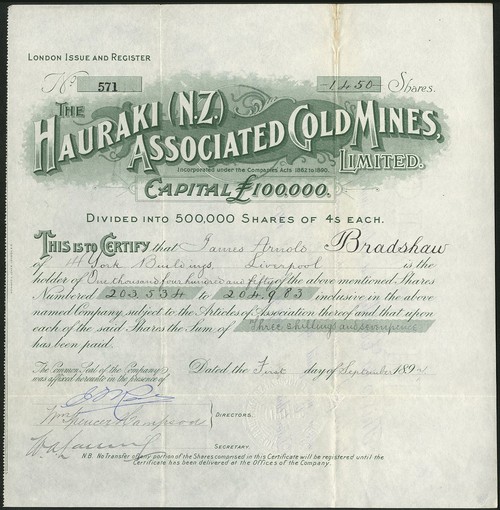 LONDON ISSUE AND REGISTER
No 571 1450 Shares.
THE
HAURAKI (N.Z.)
ASSOCIATED GOLD MINES,
LIMITED.
Incorporated under the Companies Acts 1862 to 1890.
CAPITAL £100,000.
DIVIDED INTO 500,000 SHARES OF 4s EACH.
THIS IS TO CERTIFY that James Arnold Bradshaw
of 14 York Buildings, Liverpool is the
holder of One thousand four hundred and fifty of the above mentioned Shares
Numbered 203,534 to 204,983 inclusive in the above
named Company, subject to the Articles of Association thereof and that upon
each of the said Shares the Sum of Three shillings and sevenpence
has been paid.
The Common Seal of the Company
was affixed hereunto in the presence of
Dated the First day of September 189
DIRECTORS.
SECRETARY.
N.B. No Transfer of any portion of the Shares comprised in this Certificate will be registered until the
Certificate has been delivered at the Offices of the Company.